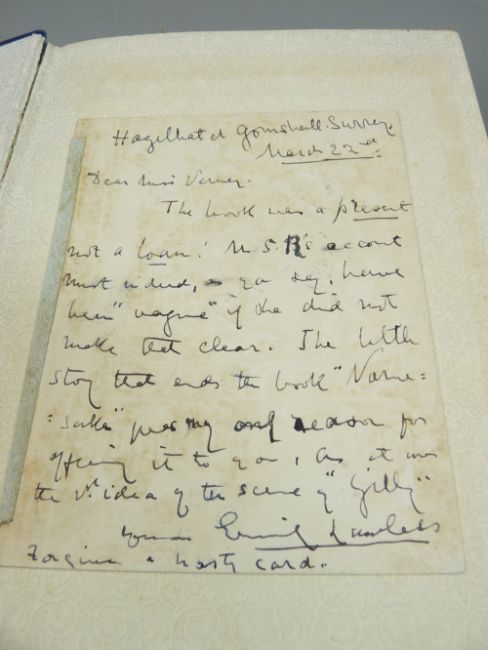 Hazelhatch Gomshall. Surrey.
March 22nd
Dear Miss Verney.
The book was a present
not a loan! M S R's account
must indeed, as you say, have
been "vague" if she did not
make that clear. The little
story that ends the book "Name=
=sake" was my only reason for
offering it to you, as it was
the 1st idea of the scene of "Gilly"
yours Emily Lawless
Forgive a hasty card.